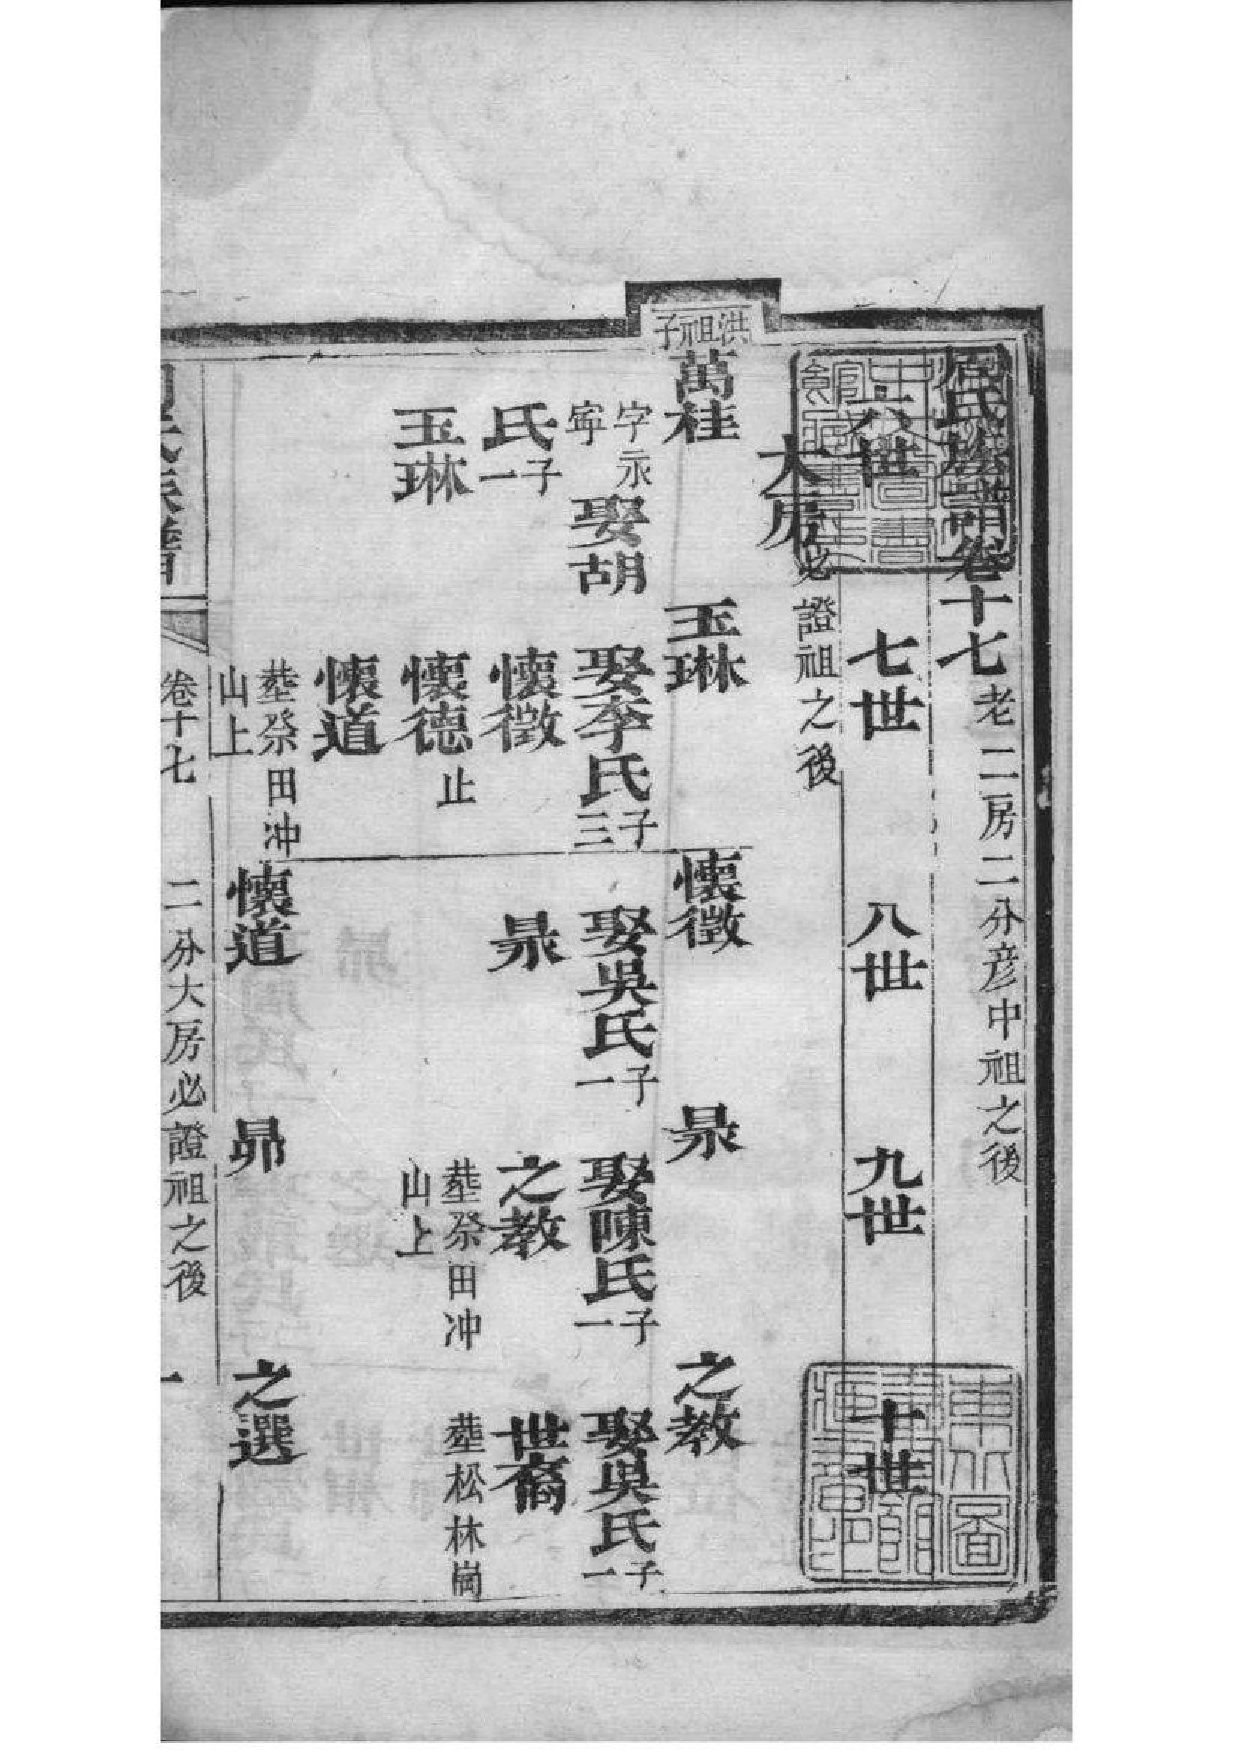 周氏族譜卷十七 老二房二分彦中祖之後
六世 七世 八世 九世 十世
大房 必證祖之後
洪祖子
萬桂 玉琳 懷徵 杲 之教
字永寍 娶胡 娶李氏 三子 娶吳氏 一子 娶陳氏 一子 娶吳氏 一子
氏 一子 懷徵 杲 之教 世裔
玉琳 懷德 止 塟祭田冲山上 塟松林崗
懷道
塟祭田冲山上
懷道 昴 之選
周氏族譜 卷十七 二分大房必證祖之後 一